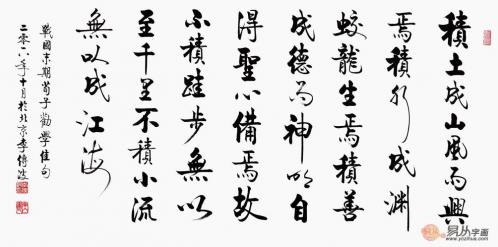 積土成山風雨興
焉積水成渊
蛟龍生焉積善
成德而神明自
得聖心備焉故
不積跬步無以
至千里不積小流
無以成江海
戰國末期荀子勸學佳句
二零一八年十月於北京李傳波
易从字画